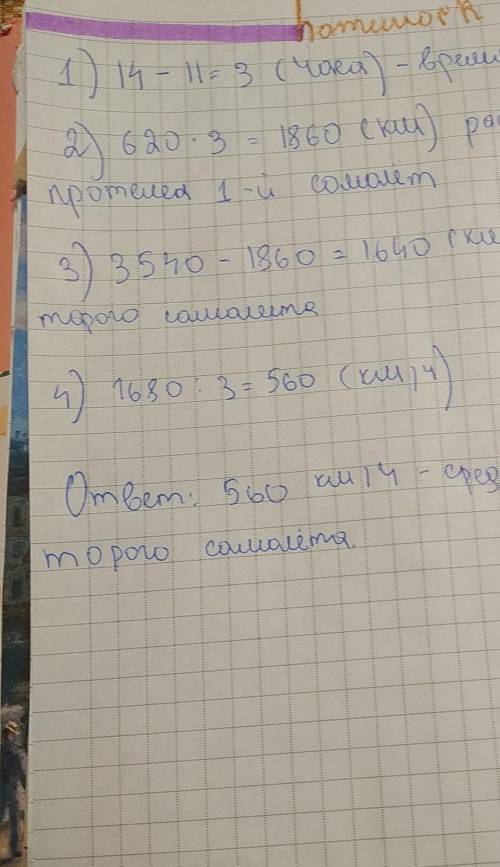 1) 14 - 11 = 3 (часа) - врем
2) 620 · 3 = 1860 (км) рас
протелеа 1-й самолёт
3) 3540 - 1860 = 1640 (км
торого самолета
4) 1680 : 3 = 560 (км/ч)
Ответ: 560 км/ч - сред
торого самолёта